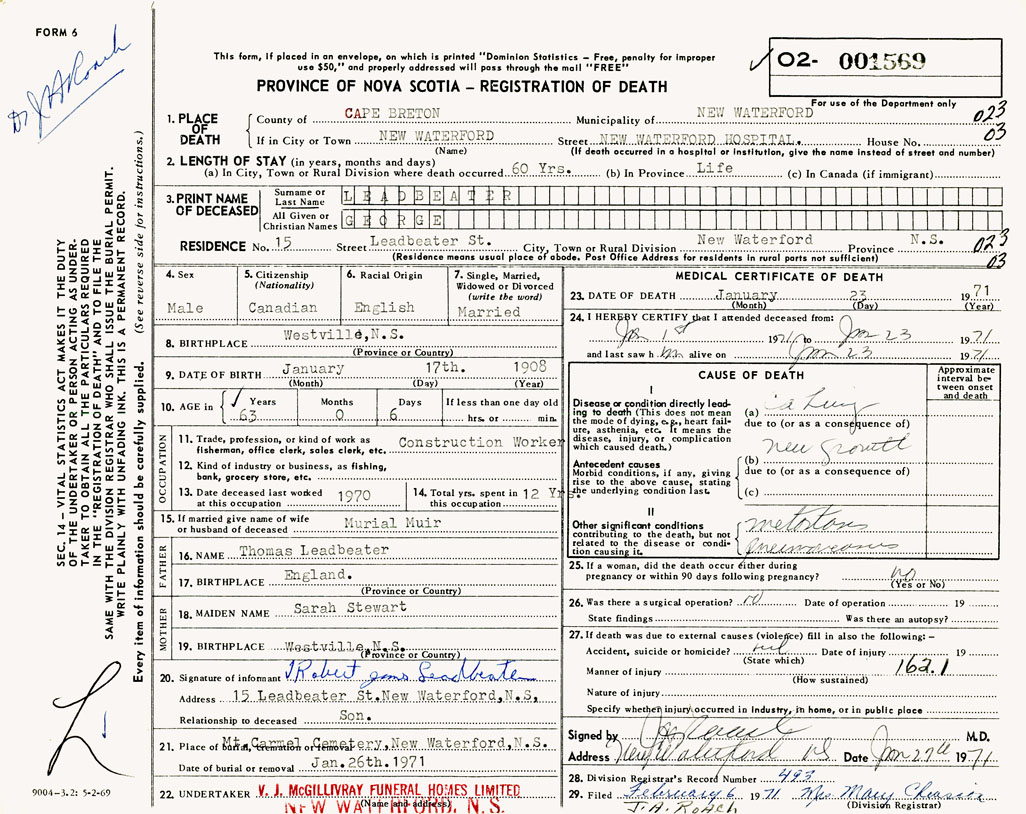 FORM 6
Dr J A Roach
This form, if placed in an envelope, on which is printed "Dominion Statistics – Free, penalty for improper
use $50," and properly addressed will pass through the mail "FREE"
O2- 001569
For use of the Department only
PROVINCE OF NOVA SCOTIA – REGISTRATION OF DEATH
1. PLACE OF DEATH
County of CAPE BRETON Municipality of NEW WATERFORD 023
If in City or Town NEW WATERFORD Street NEW WATERFORD HOSPITAL. House No. 03
(Name) (If death occurred in a hospital or institution, give the name instead of street and number)
2. LENGTH OF STAY (in years, months and days)
(a) In City, Town or Rural Division where death occurred 60 Yrs. (b) In Province Life (c) In Canada (if immigrant)
3. PRINT NAME OF DECEASED
Surname or Last Name LEADBEATER
All Given or Christian Names GEORGE
RESIDENCE No. 15 Street Leadbeater St. City, Town or Rural Division New Waterford Province N.S. 023
(Residence means usual place of abode. Post Office Address for residents in rural parts not sufficient) 03
4. Sex
Male
5. Citizenship
(Nationality)
Canadian
6. Racial Origin
English
7. Single, Married,
Widowed or Divorced
(write the word)
Married
8. BIRTHPLACE Westville,N.S.
(Province or Country)
9. DATE OF BIRTH January 17th. 1908
(Month) (Day) (Year)
10. AGE in Years Months Days If less than one day old
63 0 6 hrs. or min.
OCCUPATION
11. Trade, profession, or kind of work as
fisherman, office clerk, sales clerk, etc. Construction Worker
12. Kind of industry or business, as fishing,
bank, grocery store, etc.
13. Date deceased last worked
at this occupation 1970
14. Total yrs. spent in
this occupation 12 Yrs.
15. If married give name of wife
or husband of deceased Murial Muir
FATHER
16. NAME Thomas Leadbeater
17. BIRTHPLACE England.
(Province or Country)
MOTHER
18. MAIDEN NAME Sarah Stewart
19. BIRTHPLACE Westville,N.S.
(Province or Country)
20. Signature of informant Robert Leadbeater
Address 15 Leadbeater St.New Waterford,N.S,
Relationship to deceased Son.
21. Place of burial, cremation or removal Mt.Carmel Cemetery,New Waterford,N.S.
Date of burial or removal Jan.26th.1971
22. UNDERTAKER V. J. McGILLIVRAY FUNERAL HOMES LIMITED
(Name and address) NEW WATERFORD, N. S.
MEDICAL CERTIFICATE OF DEATH
23. DATE OF DEATH January 23 1971
(Month) (Day) (Year)
24. I HEREBY CERTIFY that I attended deceased from:
Jan 1st 1971 to Jan 23 1971
and last saw him alive on Jan 23 1971
CAUSE OF DEATH
Approximate
interval be-
tween onset
and death
I
Disease or condition directly lead-
ing to death (This does not mean
the mode of dying, e.g., heart fail-
ure, asthenia, etc. It means the
disease, injury, or complication
which caused death.)
(a) ca Lung
due to (or as a consequence of)
Antecedent causes
Morbid conditions, if any, giving
rise to the above cause, stating
the underlying condition last.
(b) New Growth
due to (or as a consequence of)
(c)
II
Other significant conditions
contributing to the death, but not
related to the disease or condi-
tion causing it.
25. If a woman, did the death occur either during
pregnancy or within 90 days following pregnancy? no
(Yes or No)
26. Was there a surgical operation? no Date of operation 19
State findings Was there an autopsy?
27. If death was due to external causes (violence) fill in also the following: –
Accident, suicide or homicide? Date of injury 19
(State which)
Manner of injury 162.1
(How sustained)
Nature of injury
Specify whether injury occurred in industry, in home, or in public place
Signed by M.D.
Address New Waterford NS Date Jan 27th 1971
28. Division Registrar's Record Number 493
29. Filed February 6 1971 Mrs Mary Chiasson
(Division Registrar)
J.A. ROACH
SEC. 14 – VITAL STATISTICS ACT MAKES IT THE DUTY
OF THE UNDERTAKER OR PERSON ACTING AS UNDER-
TAKER TO OBTAIN ALL THE PARTICULARS REQUIRED
IN THE "REGISTRATION OF DEATH" AND TO FILE THE
SAME WITH THE DIVISION REGISTRAR WHO SHALL ISSUE THE BURIAL PERMIT.
WRITE PLAINLY WITH UNFADING INK. THIS IS A PERMANENT RECORD.
Every item of information should be carefully supplied. (See reverse side for instructions.)
9004-3.2: 5-2-69